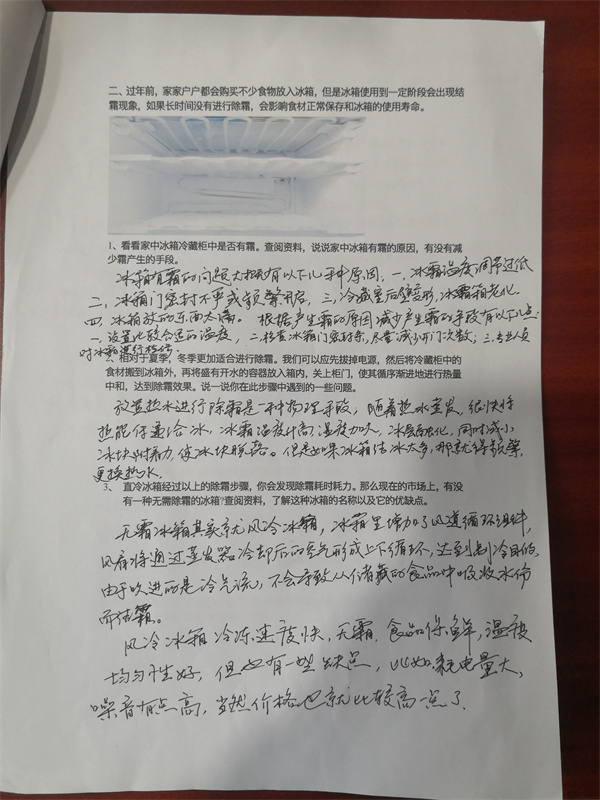 二、过年前，家家户户都会购买不少食物放入冰箱，但是冰箱使用到一定阶段会出现结
霜现象，如果长时间没有进行除霜，会影响食材正常保存和冰箱的使用寿命。
1、看看家中冰箱冷藏柜中是否有霜。查阅资料，说说家中冰箱有霜的原因，有没有减
少霜产生的手段。
冰箱有霜的问题大概有以下几种原因，一、冰霜温度调节过低
二、冰箱门密封不严或频繁开启，三、冷藏室后壁变形，冰霜箱老化。
四、冰箱放的东西太满。根据产生霜的原因减少产生霜的手段有以下几点：
一、设置比较合适的温度，二、检查冰箱门密封条，尽量减少开门次数；三、专业人员
对冰箱进行检修
2、相对于夏季，冬季更加适合进行除霜。我们可以应先拔掉电源，然后将冷藏柜中的
食材搬到冰箱外，再将盛有开水的容器放入箱内，关上柜门，使其循序渐进地进行热量
中和，达到除霜效果。说一说你在此步骤中遇到的一些问题。
放置热水进行除霜是一种物理手段，随着热水蒸发，很快将
热能传递给冰，冰霜温度升高，温度加大，冰会融化，同时减小
冰块附着力，使冰块脱落。但是如果冰箱结冰太多，那就得频繁
更换热水。
3、 直冷冰箱经过以上的除霜步骤，你会发现除霜耗时耗力。那么现在的市场上，有没
有一种无需除霜的冰箱?查阅资料，了解这种冰箱的名称以及它的优缺点。
无霜冰箱其实就风冷冰箱，冰箱里增加了风道循环组件，
风扇将通过蒸发器冷却后的空气形成上下循环，达到制冷目的，
由于吹进的是冷气流，不会导致从储藏的食品中吸收水份
而结霜。
风冷冰箱冷冻速度快，无霜，食品保鲜，温度
均匀性好，但也有一些缺点，比如：耗电量大，
噪音有点高，当然价格也就比较高一点了